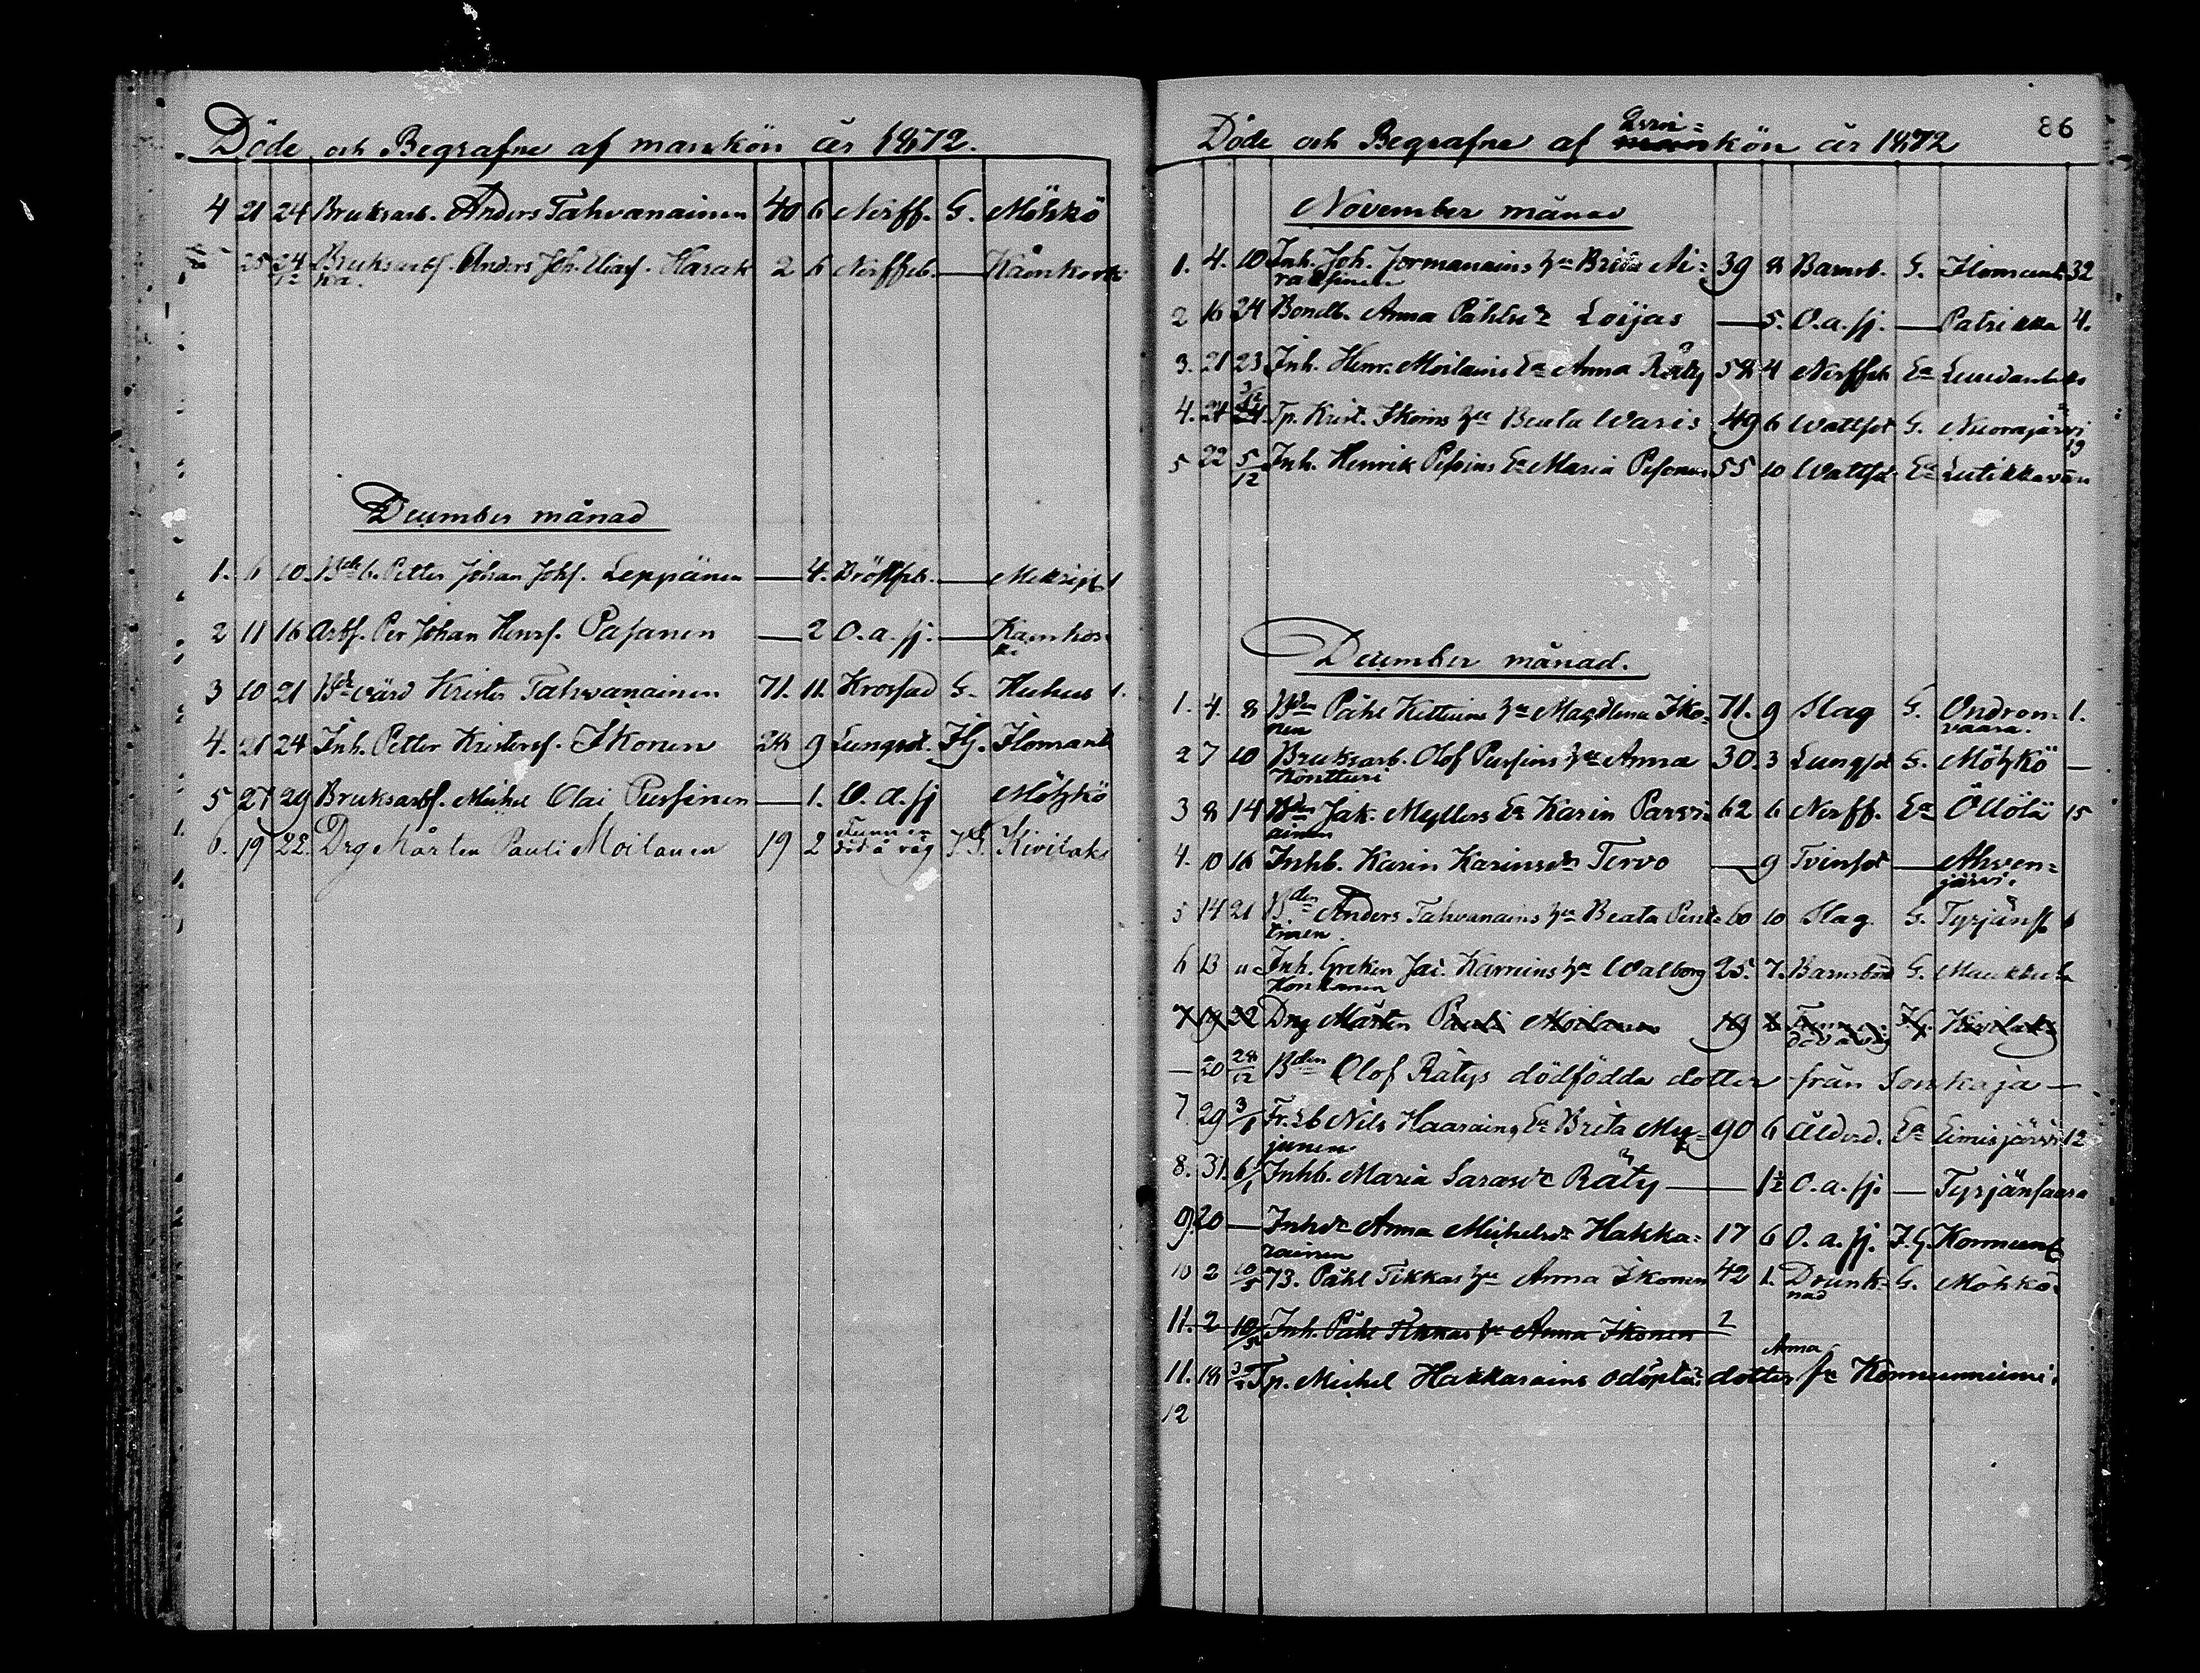 Döde och Begrafne af mankön år 1872.
4 21 24 Bruksarb. Anders Tahvanainen 40 6 Nerff. G. Möhkö
25 24/12 Bruksarbs. Anders Joh. Eliass. Harak 2 6 Nerffeb. — Käenkoski
ka.
December månad
1. 6 10 Bde b. Petter Johan Johs. Leppänen — 4. Bröstfeb. — Mekrijb 1
2 11 16 Arbs. Per Johan Henrs. Pasanen — 2 O.a.sj. — Käenkos-
ki
3 10 21 Bde värd Krister Tahvanainen 71. 11. Krossad G. Huhus 1.
4. 21 24 Inh. Petter Kristerss. Ikonen 28 9 Lungsot. Ig. Ilomants
5 27 29 Bruksarbs. Michel Olai Pussinen — 1. O.a.sj Möhkö
6. 19 22. Drg Mårten Pauli Moilanen 19 2 Funnen I.G. Kivilaks
död å väg
Döde och Begrafne af Qvin= kön år 1872
86
November månad
1. 4. 10 Inh. Joh. Jormanains hu Brita Ai= 39 8 Barnsb. G. Ilomants 32
raksinen
2 16 24 Bondb. Anna Påhlsdr Loijas — 5. O.a.sj. — Patrikka 4.
3. 21 23 Inh. Henr. Moilains Ea Anna Räty 58 4 Nerffeb Ea
4. 24 3/12 Tp. Krist. Ikoins hu Beata Waris 49 6 Wattsot G. Nuorajärvi
19
5 22 5/12 Inh. Henrik Ea Maria Pesonen 55 10 Wattsot Ea Lutikkavaa
December månad.
1. 4. 8 Bden Påhl Kettuins hu Magdlena Iko= 71. 9 Slag G. Ondron= 1.
nen vaara.
2 7 10 Bruksarb. Olof Pussins hu Anna 30. 3 Lungsot G. Möhkö —
Kontturi
3 8 14 Bden Jak. Myllers Ea Karin Parvi= 62 6 Nerff. Ea Öllölä 15
ainen
4. 10 16 Inhb. Karin Karinsdr Tervo — 9 Tvinsot — Ahven=
järvi.
5 14 21 Bden Anders Tahvanains hu Beata Pent= 60 10 Slag. G. Tyrjäns 6
tinen.
6 13 " Inh. Greken Jai. Karvins hu Walborg 25. 7. Barnsbörd G. Maukku
Korhonen
7 19 22 Drg Mårten Pauli Moilanen 19 2 Funnen Ig. Kivilaks
död å väg
— 20 28/12 Bden Olof Rätys dödfödda dotter från Sonkaja —
7 29 3/1 Fr. Sb Nils Haarains Ea Brita My= 90 6 Ålderd. Ea Eimisjärvi 12
junen
8. 31. 6/1 Inhb. Maria Sarasdr Räty — 1½ O.a.sj. — Tyrjänsaara
9. 20 — Inhdr Anna Michelsdr Hakka= 17 6 O.a.sj. I.G. Kornuns
rainen
10 2 10/5 73. Påhl Tikkas hu Anna Ikonen 42 1. Drunk= G. Möhkö.
nad
11. 2 10/5 Inh. Påhl Tikkas hu Anna Ikonen 2
Anna
11. 18 Tp. Michel Hakkarains odöpta dotter fr Kornunniemi.
12